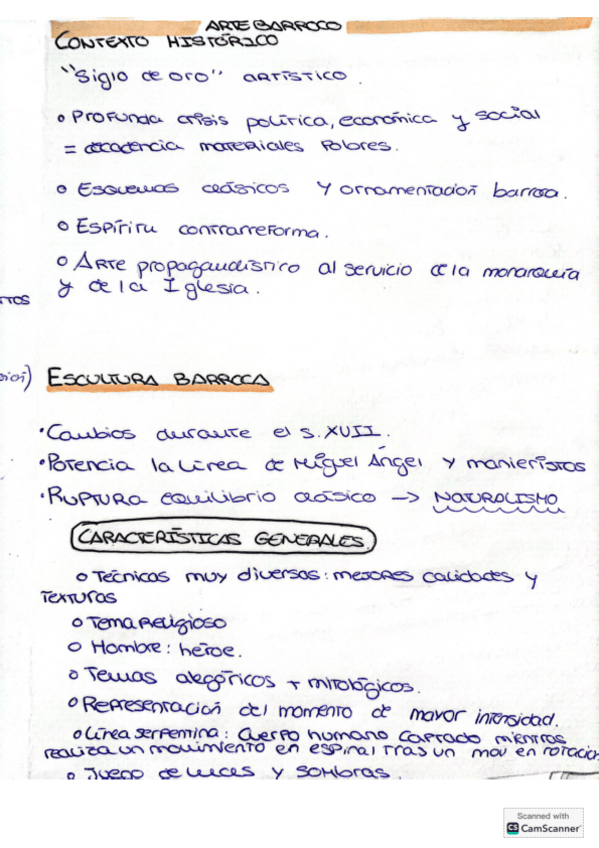 ARTE BARROCO
CONTEXTO HISTÓRICO
"Siglo de oro" ARTÍSTICO.
o PROFUNDA crisis política, económica y social
= decadencia materiales Pobres.
o Esquemas clásicos Y ornamentación barroca.
o Espíritu contrarreforma.
o ARTE propagandístico al servicio de la monarquía
y de la Iglesia.
ESCULTURA BARROCA
· Cambios durante el s. XVII.
· Potencia la línea de Miguel Ángel y manieristas
· RUPTURA equilibrio clásico -> NATURALISMO
CARACTERÍSTICAS GENERALES
o Técnicas muy diversas: mejores calidades y
texturas
o Tema Religioso
o Hombre: héroe.
o Temas alegóricos + mitológicos.
o Representación del momento de mayor intensidad.
o Línea serpentina: Cuerpo humano captado mientras
realiza un movimiento en espiral tras un mov en rotación
o Juego de luces y sombras.
Scanned with
CS CamScanner